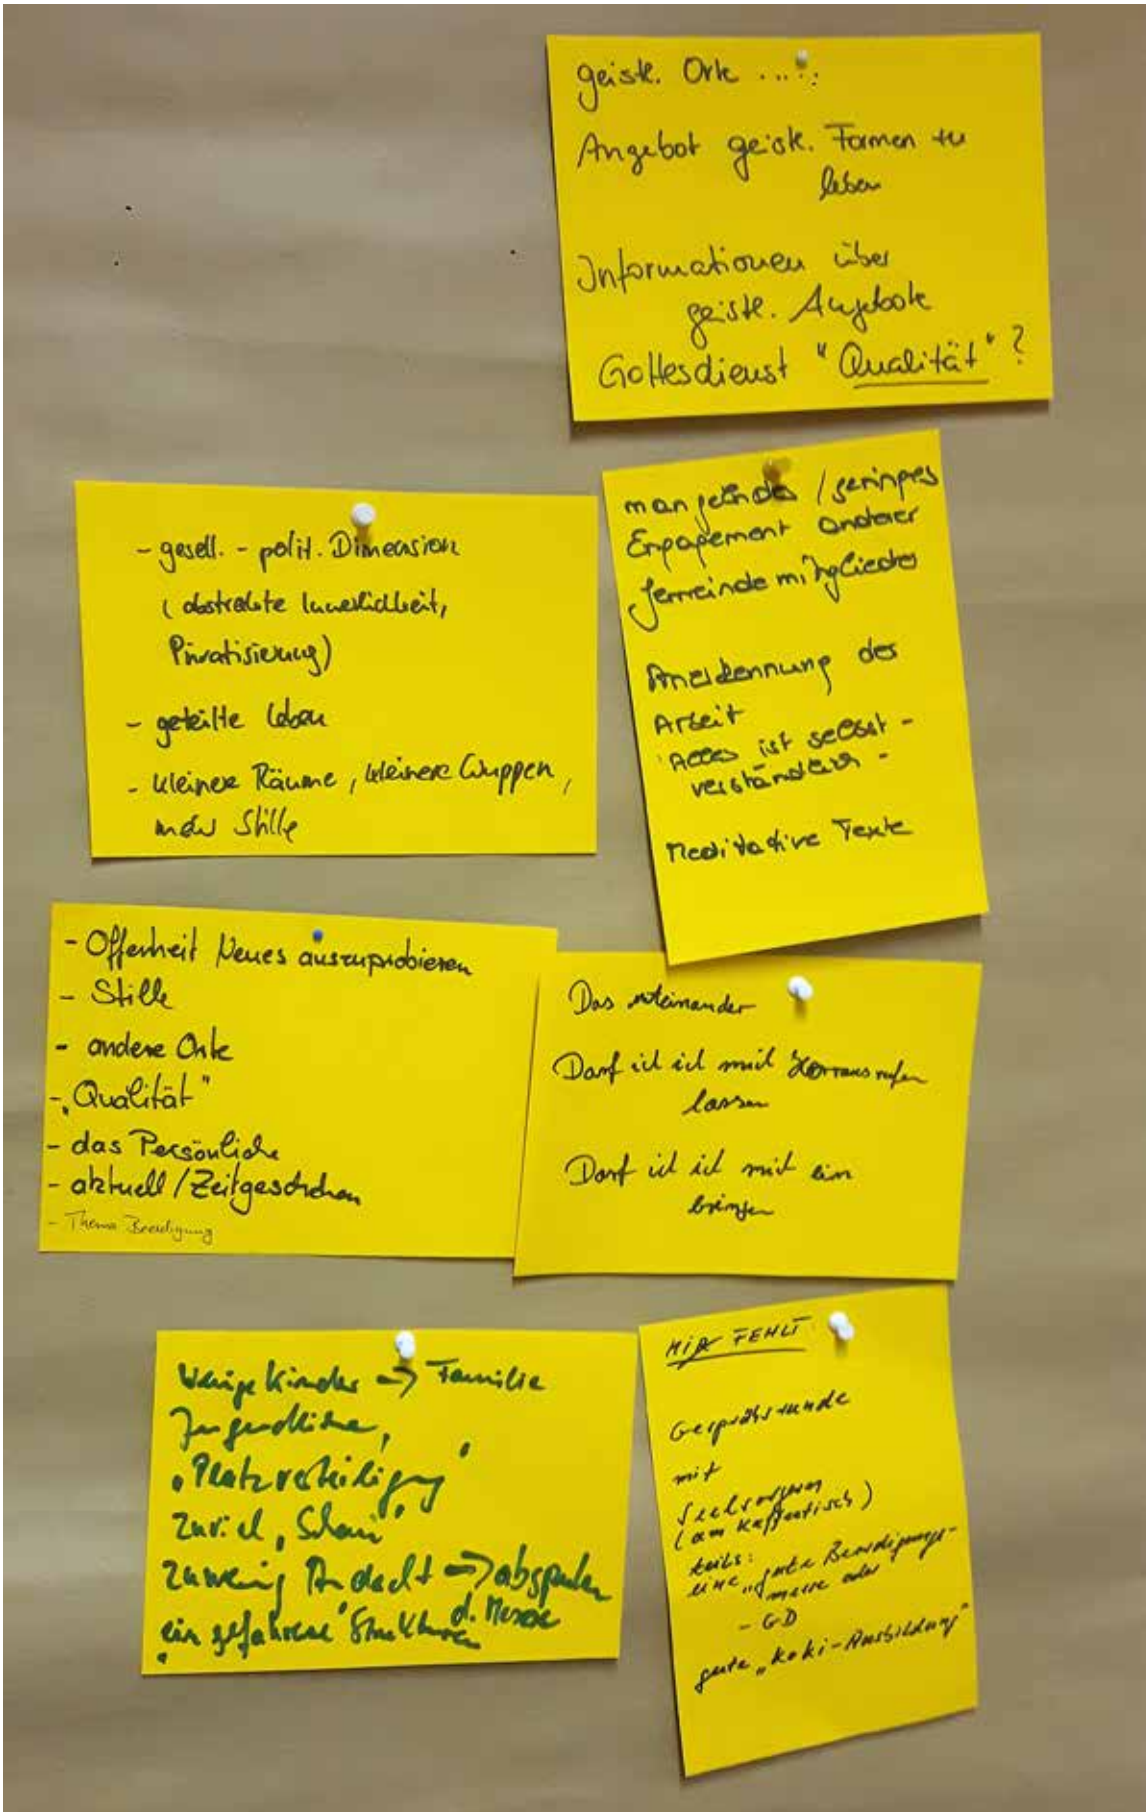 geistl. Orte .....
Angebot geistl. Formen zu
leben
Informationen über
geistl. Angebote
Gottesdienst "Qualität"?
- gesell. - polit. Dimension
(abstrakte Innerlichkeit,
Privatisierung)
- geteilte Leben
- kleinere Räume, kleinere Gruppen,
mehr Stille
mangelndes / geringes
Engagement anderer
Gemeindemitglieder
Anerkennung der
Arbeit
"Alles ist selbst-
verständlich -
Meditative Texte
- Offenheit Neues auszuprobieren
- Stille
- andere Orte
- „Qualität"
- das Persönliche
- aktuell / Zeitgeschehen
- Thema Beerdigung
Das miteinander
Darf ich ich mich herrausrufen
lassen
Darf ich ich mich ein
bringen
Wenige Kinder → Familie
Jugendliche,
„Platzverteidigung"
zuviel „Schau"
zuwenig Andacht → abspulen
d. Messe
"eingefahrene" Strukturen
MIR FEHLT
Gesprächsrunde
mit
Seelsorgern
(am Kaffeetisch)
teils:
eine „gute Beerdigungs-
messe oder
- GD
gute „Koki-Ausbildung"